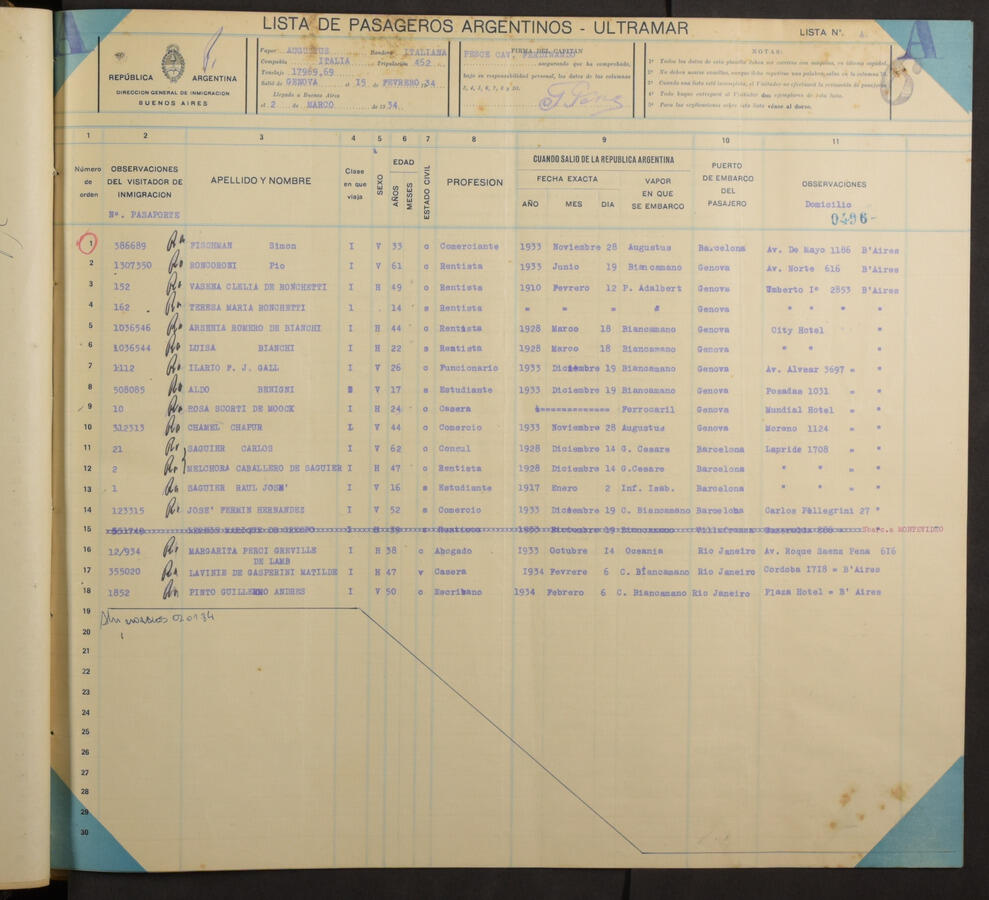 LISTA DE PASAGEROS ARGENTINOS - ULTRAMAR
LISTA Nº. A
REPÚBLICA ARGENTINA
DIRECCION GENERAL DE INMIGRACION
BUENOS AIRES
Vapor AUGUSTUS Bandera ITALIANA
Compañia ITALIA Tripulación 452
Tonelaje 17969,69
Salió de GENOVA el 15 de FEVRERO 34
Llegado a Buenos Aires
el 2 de MARCO de 1934.
FIRMA DEL CAPITAN
PESCE CAV. FERDINANDO
asegurando que ha comprobado,
bajo su responsabilidad personal, los datos de las columnas
3, 4, 5, 6, 7, 8 y 10.
NOTAS:
1º Todos los datos de esta planilla deben ser escritos con máquina, en idioma español.
5º Para las explicaciones sobre esta lista véase al dorso.
1 2 3 4 5 6 7 8 9 10 11
Número de orden
OBSERVACIONES DEL VISITADOR DE INMIGRACION
Nº. PASAPORTE
APELLIDO Y NOMBRE
Clase en que viaja
SEXO
EDAD
AÑOS
MESES
ESTADO CIVIL
PROFESION
CUANDO SALIO DE LA REPUBLICA ARGENTINA
FECHA EXACTA
AÑO MES DIA
VAPOR EN QUE SE EMBARCO
PUERTO DE EMBARCO DEL PASAJERO
OBSERVACIONES
Domicilio
0496-
1 386689 FISCHMAN Simon I V 33 c Comerciante 1933 Noviembre 28 Augustus Barcelona Av. De Mayo 1186 B'Aires
2 1307350 RONCORONI Pio I V 61 c Rentista 1933 Junio 19 Biancamano Genova Av. Norte 616 B'Aires
3 152 VASENA CLELIA DE RONCHETTI I H 49 c Rentista 1910 Fevrero 12 P. Adalbert Genova Umberto Iº 2853 B'Aires
4 162 TERESA MARIA RONCHETTI 1 14 s Rentista " " " " Genova " " " "
5 1036546 ARSENIA ROMERO DE BIANCHI I H 44 c Rentista 1928 Marco 18 Biancamano Genova City Hotel "
6 1036544 LUISA BIANCHI I H 22 s Rentista 1928 Marco 18 Biancamano Genova " " "
7 1112 ILARIO F. J. GALL I V 26 c Funcionario 1933 Diciembre 19 Biancamano Genova Av. Alvear 3697 = "
8 508085 ALDO BENIGNI V 17 s Estudiante 1933 Diciembre 19 Biancamano Genova Posadas 1031 = "
9 10 ROSA SCORTI DE MOOCK I H 24 c Casera Ferrocaril Genova Mundial Hotel = "
10 312313 CHAMEL CHAPUR L V 44 c Comercio 1933 Noviembre 28 Augustus Genova Moreno 1124 = "
11 21 SAGUIER CARLOS I V 62 c Concul 1928 Diciembre 14 G. Cesare Barcelona Lapride 1708 = "
12 2 MELCHORA CABALLERO DE SAGUIER I H 47 c Rentista 1928 Diciembre 14 G.Cesare Barcelona " " "
13 1 SAGUIER RAUL JOSE' I V 16 s Estudiante 1917 Enero 2 Inf. Isab. Barcelona " " "
14 123315 JOSE' FERMIN HERNANDEZ I V 52 s Comercio 1933 Diciembre 19 C. Biancamano Barcelona Carlos Pellegrini 27 "
15 H 39 1933 Biancamano Villafranca MONTEVIDEO
16 12/934 MARGARITA PERCI GREVILLE DE LAMB I H 38 c Abogado 1933 Octubre 14 Oceania Rio Janeiro Av. Roque Saenz Pena 616
17 355020 LAVINIE DE GASPERINI MATILDE I H 47 v Casera 1934 Fevrere 6 C. Biancamano Rio Janeiro Cordoba 1718 = B'Aires
18 1852 PINTO GUILLERMO ANDRES I V 50 c Escribano 1934 Febrero 6 C. Biancamano Rio Janeiro Plaza Hotel = B' Aires
19
20
21
22
23
24
25
26
27
28
29
30